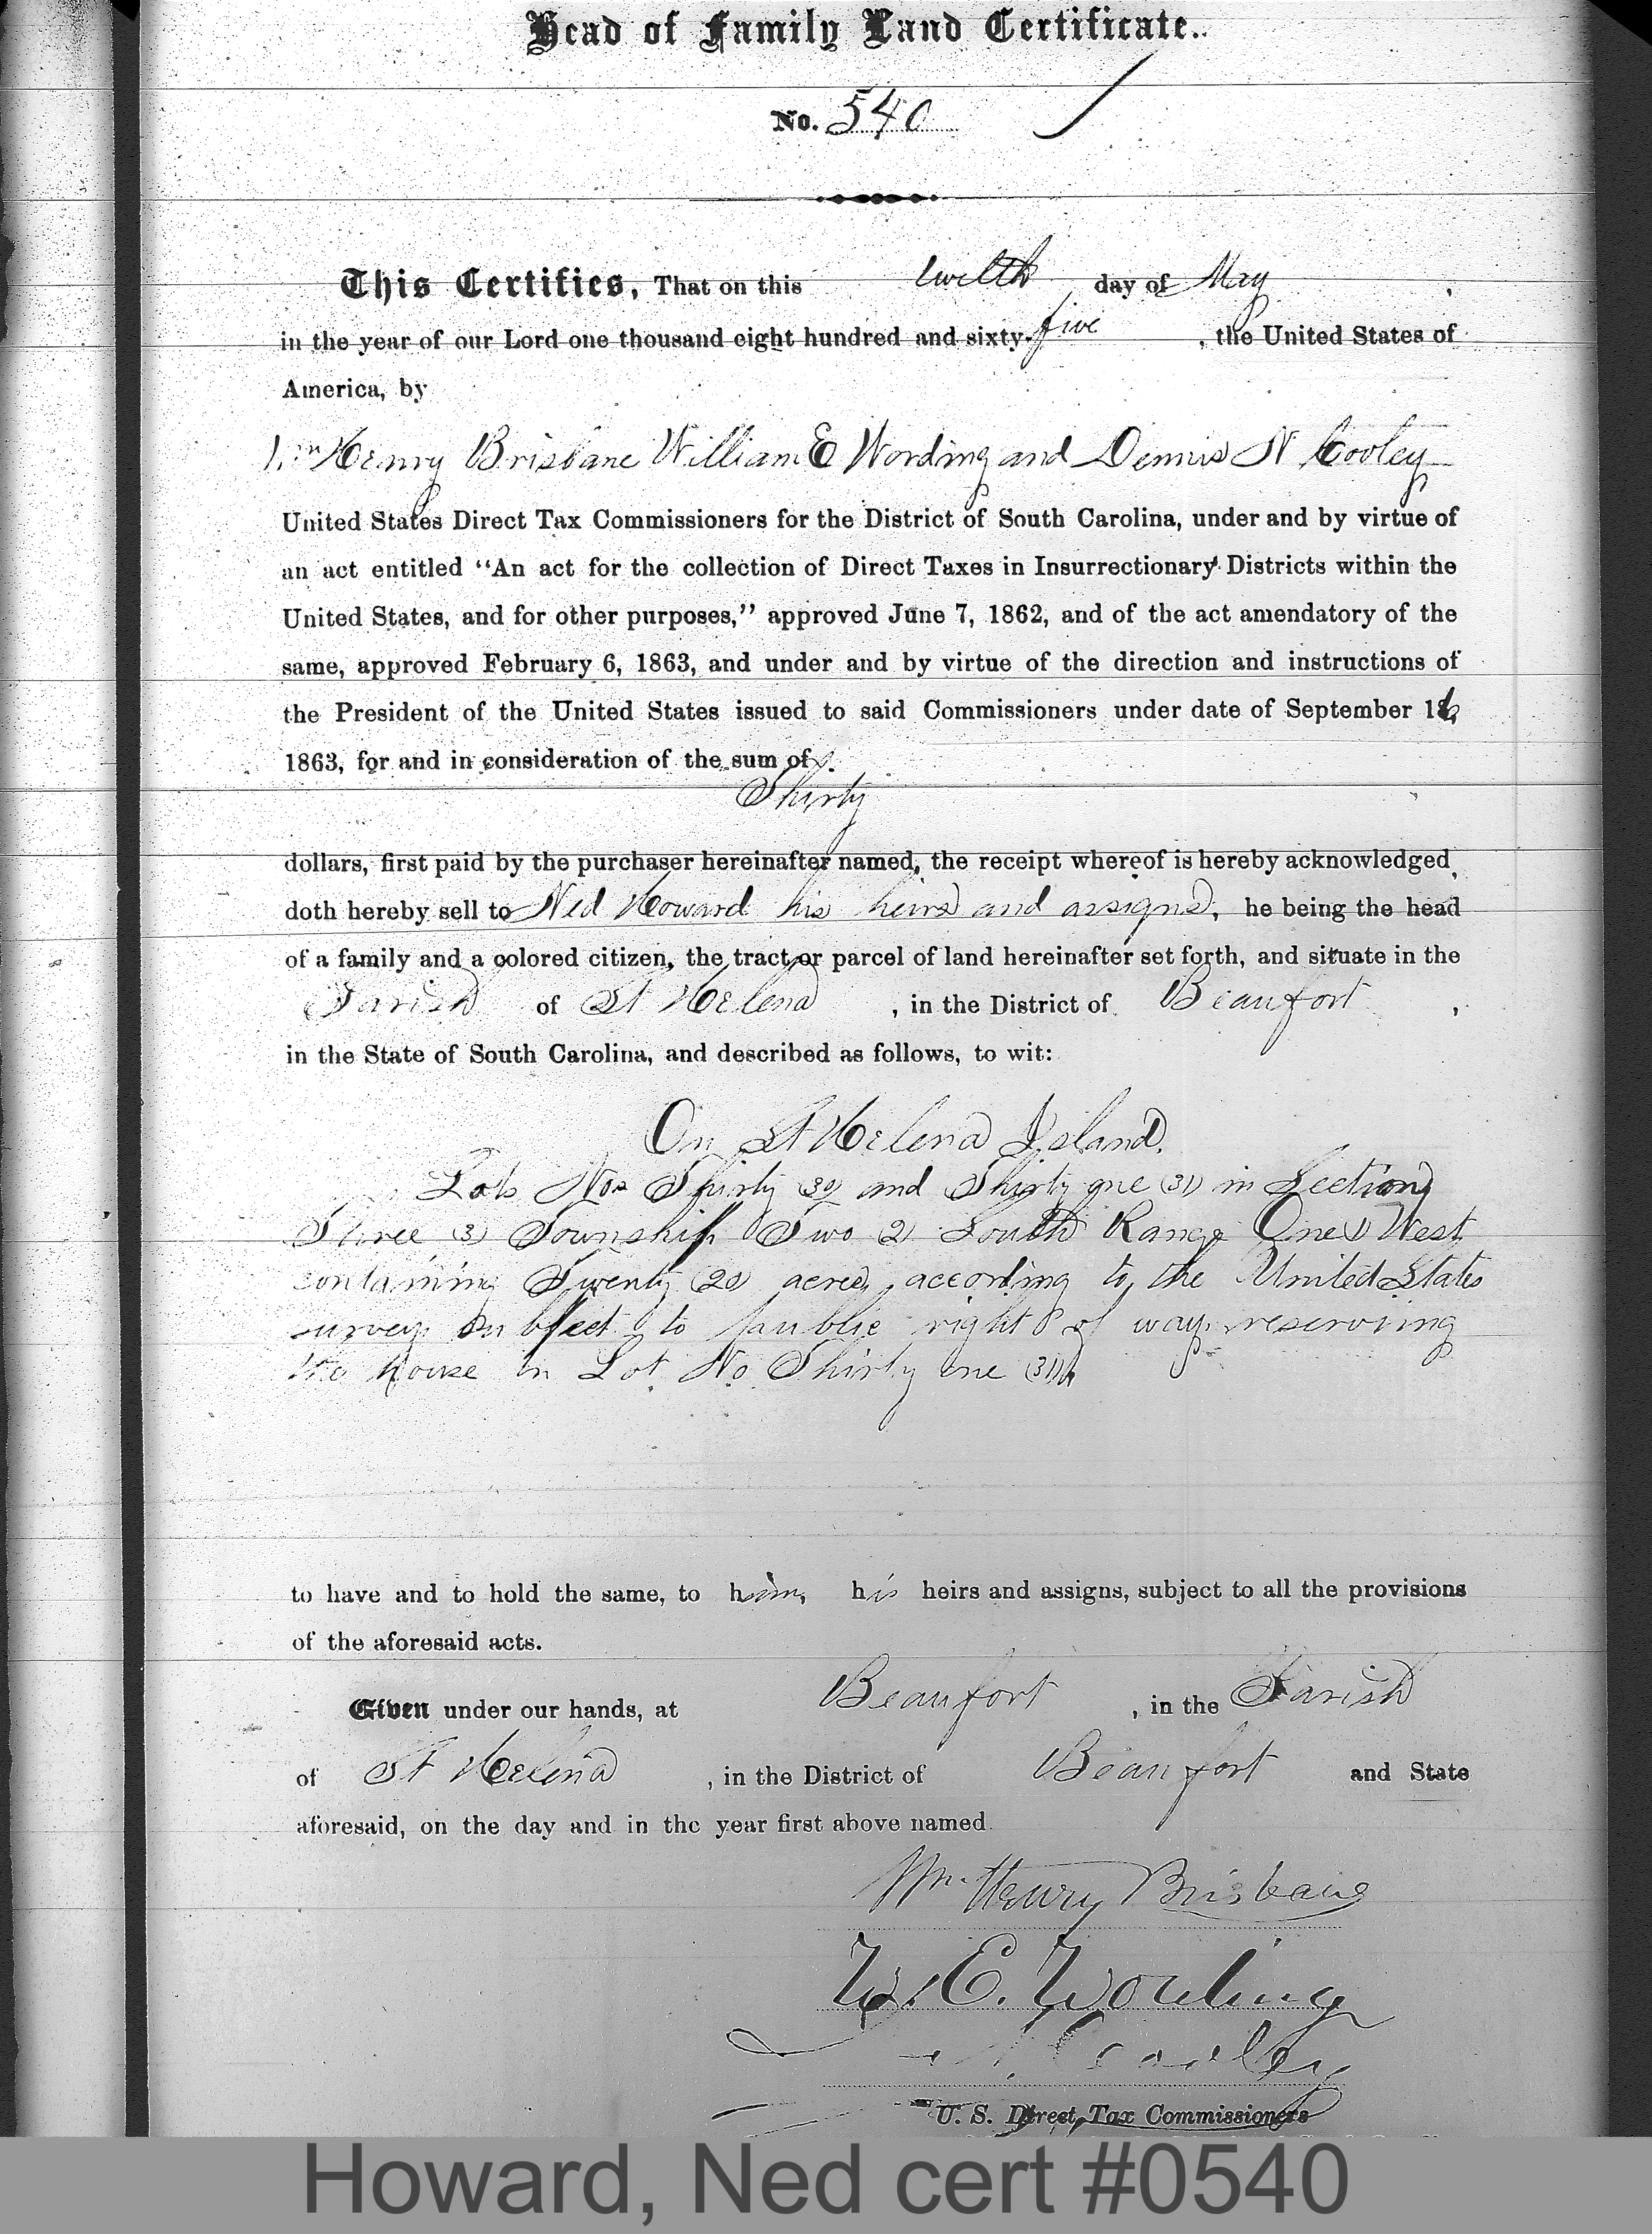 Head of Family Land Certificate.
No. 540
This Certifies, That on this twelth day of May,
in the year of our Lord one thousand eight hundred and sixty-five, the United States of
America, by
Wm Henry Brisbane William E Wording and Dennis N Cooley
United States Direct Tax Commissioners for the District of South Carolina, under and by virtue of
an act entitled "An act for the collection of Direct Taxes in Insurrectionary Districts within the
United States, and for other purposes," approved June 7, 1862, and of the act amendatory of the
same, approved February 6, 1863, and under and by virtue of the direction and instructions of
the President of the United States issued to said Commissioners under date of September 16
1863, for and in consideration of the sum of
Thirty
dollars, first paid by the purchaser hereinafter named, the receipt whereof is hereby acknowledged,
doth hereby sell to Ned Howard his heirs and assigns, he being the head
of a family and a colored citizen, the tract or parcel of land hereinafter set forth, and situate in the
Parish of St Helena, in the District of Beaufort,
in the State of South Carolina, and described as follows, to wit:
On St Helena Island.
Lots Nos Thirty (30) and Thirty one (31) in Section
Three (3) Township Two (2) South Range One (1) West
containing Twenty (20) acres, according to the United States
survey subject to public right of way reserving
the house on Lot No Thirty one (31)
to have and to hold the same, to him, his heirs and assigns, subject to all the provisions
of the aforesaid acts.
Given under our hands, at Beaufort, in the Parish
of St Helena, in the District of Beaufort and State
aforesaid, on the day and in the year first above named.
Wm. Henry Brisbane
W. E. Wording
D N Cooley
U. S. Direct Tax Commissioners
Howard, Ned cert #0540